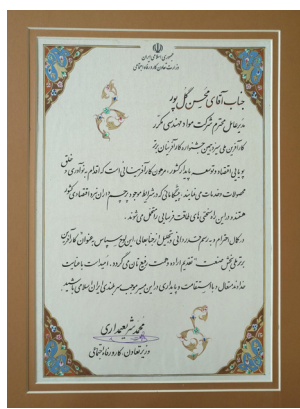 جمهوری اسلامی ایران
وزارت تعاون، کار و رفاه اجتماعی
جناب آقای محسن گل پور
مدیرعامل محترم شرکت مواد مهندسی مکرر
کارآفرین ملی سیزدهمین جشنواره کارآفرینان برتر
پویایی اقتصاد و توسعه پایدار کشور، مرهون کارآفرینانی است که اقدام به نوآوری و خلق
محصولات و خدمات می نمایند، پیشگامانی که در شرایط موجود پرچم داران نبرد اقتصادی کشور
هستند و در این راه سختی های طاقت فرسایی را متحمل می شوند.
در کمال احترام و به رسم قدردانی و تجلیل از جنابعالی، این لوح سپاس به عنوان کارآفرین
برتر ملی بخش صنعت تقدیم اراده و همت رفیع تان می گردد. امید است با عنایت
خداوند متعال و با استقامت و پایداری در این مسیر موجب سربلندی ایران اسلامی باشید.
محمد شریعتمداری
وزیر تعاون، کار و رفاه اجتماعی